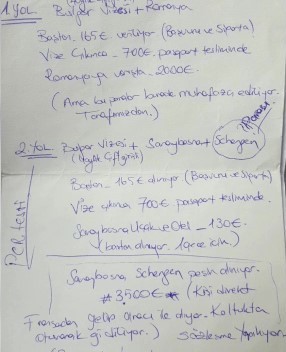 1.YOL Bulgar Vizesi + Romanya
Baştan 165€ veriliyor (Başvuru ve Sigorta)
Vize Çıkınca _ 700€, pasaport tesliminde
Romanya'ya varışta _ 2000€
(Ama bu paralar burada muhafaza ediliyor.
Tarafımızdan.)
2.YOL Bulgar Vizesi + Saraybosna + Schengen
Baştan _ 165€ alınıyor (Başvuru ve Sigorta)
Vize çıkınca 700€ pasaport tesliminde.
Saraybosna Uçak ve Otel _ 130€
(baştan alınıyor. 1 gece için.)
Saraybosna Schengen pasaportu alınıyor.
# 3500€ (Kişi direkt
Fransadan gelen aracı ile diyor. Koltukta
oturarak gidiliyor.) Sözleşme Yapılıyor.